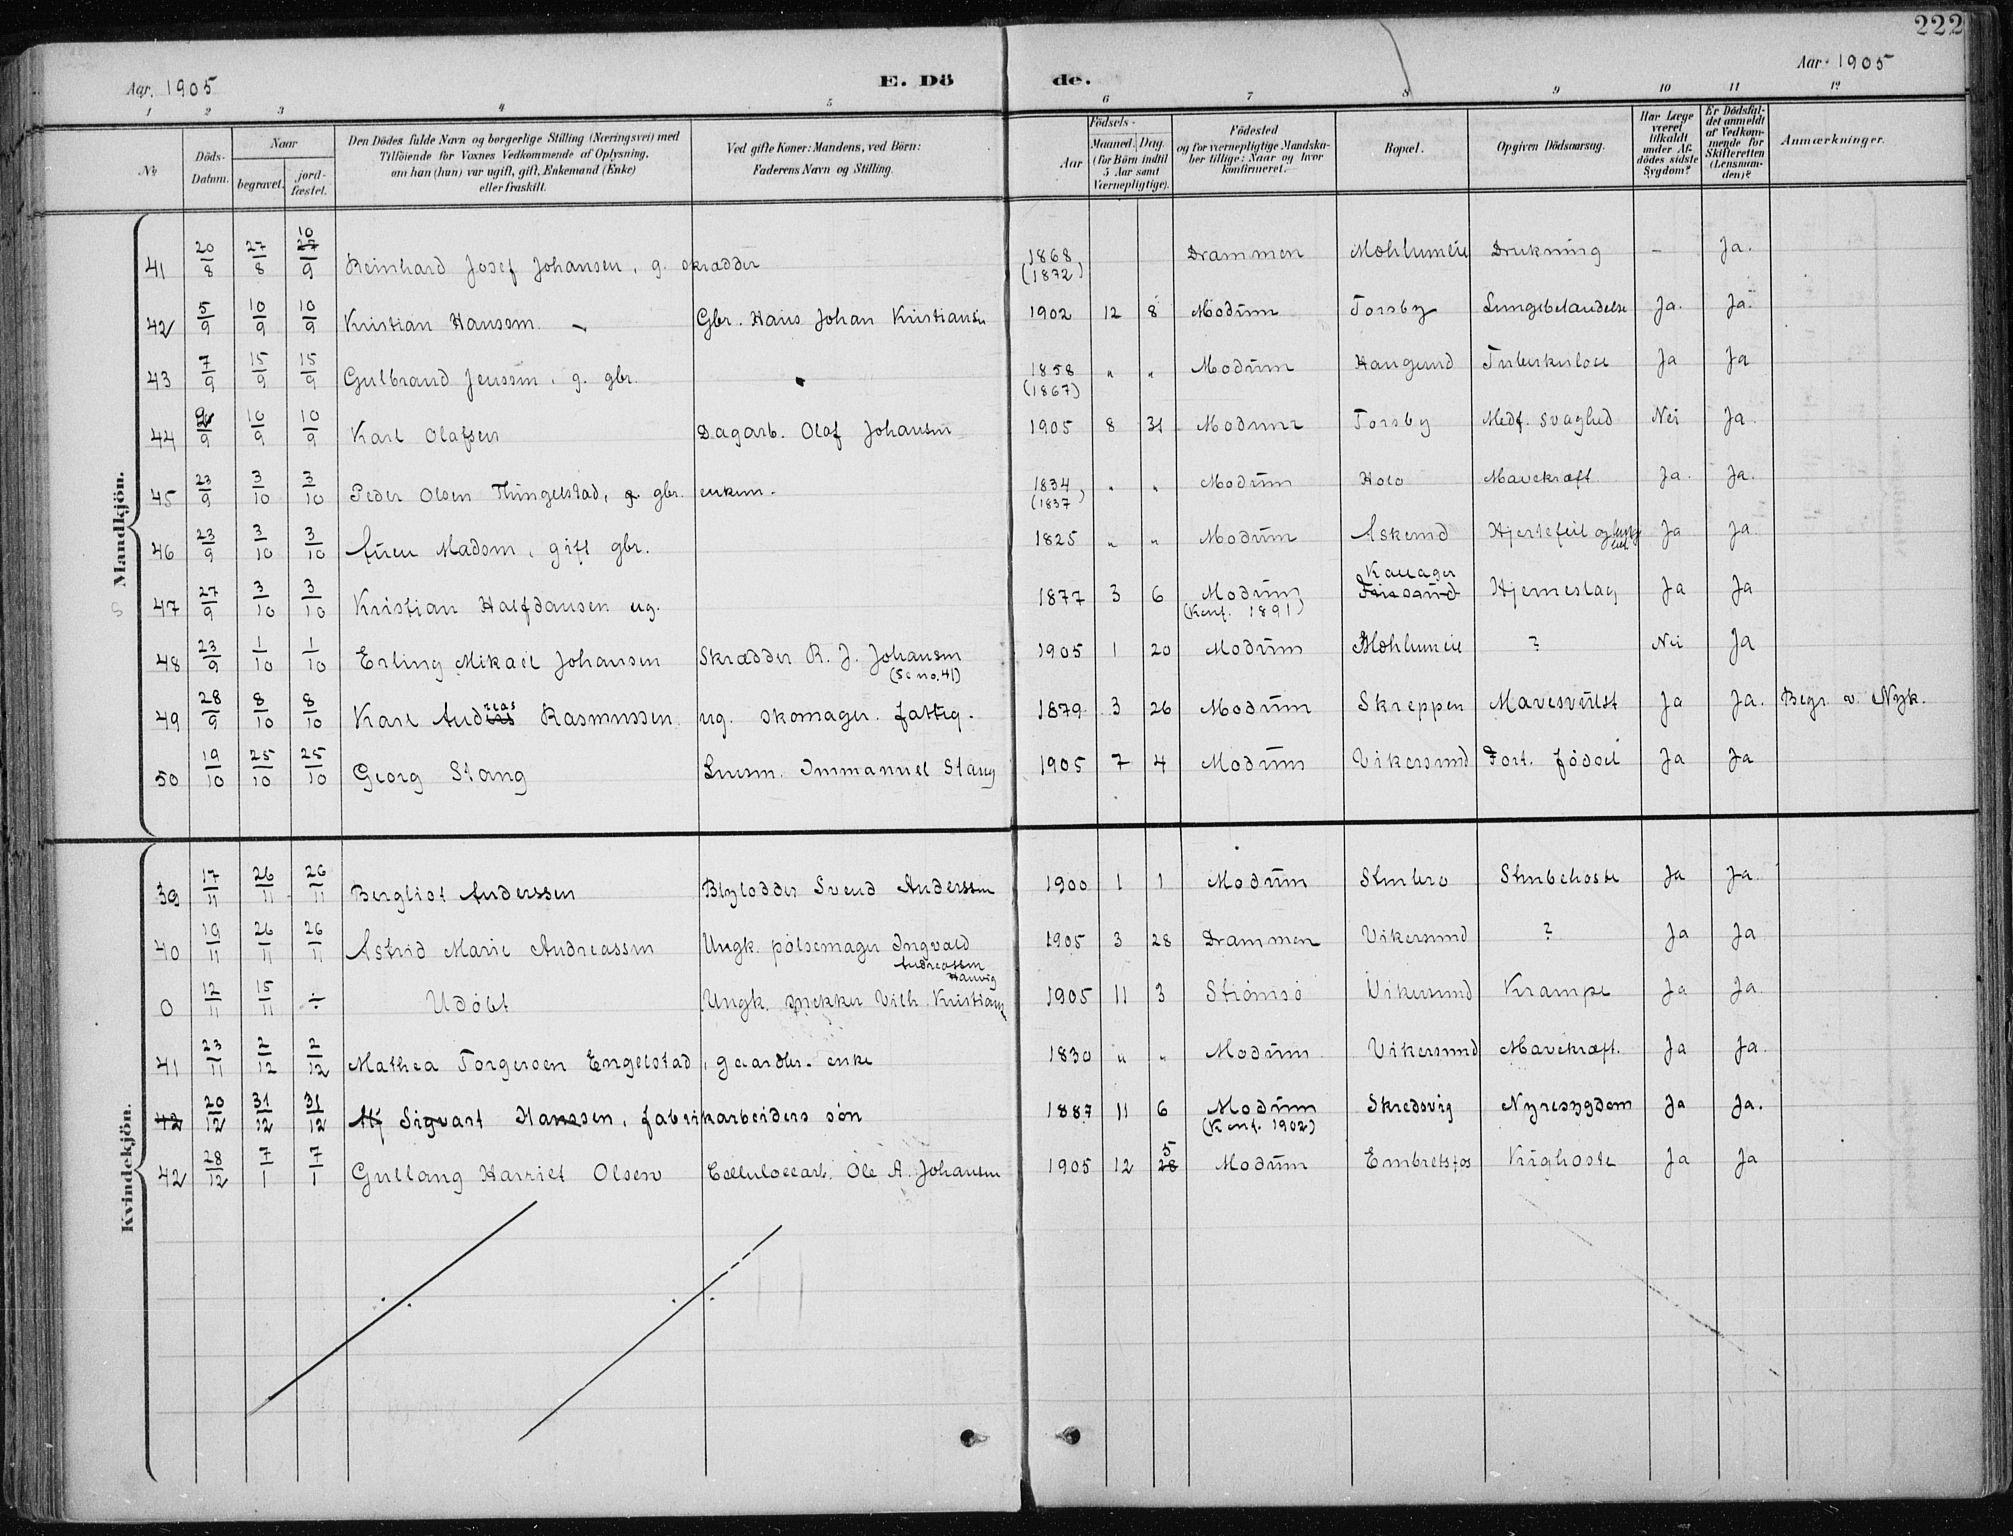 222
Aar. 1905 E. Dö de. Aar 1905
1 2 3 4 5 6 7 8 9 10 11 12
№ Döds-Datum. Naar begravet. jord-fæstet. Den Dödes fulde Navn og borgerlige Stilling (Næringsvei) med Tilföiende for Voxnes Vedkommende af Oplysning, om han (hun) var ugift, gift, Enkemand (Enke) eller fraskilt. Ved gifte Koner: Mandens, ved Börn: Faderens Navn og Stilling. Födsels- Aar Maaned. Dag. (for Börn indtil 5 Aar samt Værnepligtige). Födested og for værnepligtige Mandska-ber tillige: Naar og hvor konfirmeret. Bopæl. Opgiven Dödsaarsag. Har Læge været tilkaldt under Af-dödes sidste Sygdom? Er Dödsfal-det anmeldt af Vedkom-mende for Skifteretten (Lensman-den)? Anmærkninger.
Mandkjön.
41 20/8 27/8 10/9 Reinhard Josef Johansen, g. skrædder 1868 (1872) Drammen Mæhlumlie Drukning – Ja.
42 5/9 10/9 10/9 Kristian Hanssen Gbr. Hans Johan Kristiansen 1902 12 8 Modum Forsby Lungebetændelse Ja. Ja.
43 7/9 15/9 15/9 Gulbrand Jenssen, g. gbr. 1858 (1867) " " Modum Haugerud Tuberkulose Ja Ja
44 9/9 10/9 10/9 Karl Olafsen Dagarb. Olaf Johansen 1905 8 31 Modum Forsby Medf. svaghed Nei Ja.
45 23/9 3/10 3/10 Peder Olsen Thingelstad, gbr. enkem. 1834 (1837) " " Modum Holo Mavekræft Ja. Ja.
46 23/9 3/10 3/10 Auen Madsen, gift gbr. 1825 " " Modum Askerud Hjertefeil og Ja Ja
47 27/9 3/10 3/10 Kristian Halfdansen ug. 1877 3 6 Modum (Konf. 1891) Kallager Hjerneslag Ja Ja
48 23/9 1/10 1/10 Erling Mikael Johansen Skrædder R. J. Johansen (Se no. 41) 1905 1 20 Modum Mæhlumlie ? Nei Ja
49 28/9 8/10 8/10 Karl Andreas Rasmussen ug. skomager. fattig. 1879 3 26 Modum Skreppen Mavesvulst Ja Ja. Begr. v. Nyk.
50 19/10 25/10 25/10 Georg Stang Snem. Immanuel Stang 1905 7 4 Modum Vikersund Fort. födsel Ja Ja
Kvindekjön.
39 17/11 26/11 26/11 Bergliot Anderssen Blylodder Svend Anderssen 1900 1 1 Modum Stenbro Strubehoste Ja Ja
40 19/11 26/11 26/11 Astrid Marie Andreassen Ungk. pölsemager Ingvald Andreassen 1905 3 28 Drammen Vikersund ? Ja Ja
0 12/11 15/11 ÷ Udöbt Ungk. snekker Vilh. Kristian Hauvig 1905 11 3 Strömsö Vikersund Krampe Ja Ja.
41 23/11 2/12 2/12 Mathea Torgersen Engelstad, gaardbr. enke 1830 " " Modum Vikersund Mavekræft. Ja Ja.
42 20/12 31/12 31/12 Alf Sigvart Hanssen, fabrikarbeiders sön 1887 11 6 Modum (Konf. 1902) Skredsvig Nyresygdom Ja Ja.
42 28/12 7/1 7/1 Gullaug Harriet Olsen Cellulosearb. Ole A. Johansen 1905 12 5 28 Modum Embretsfos Kighoste Ja Ja